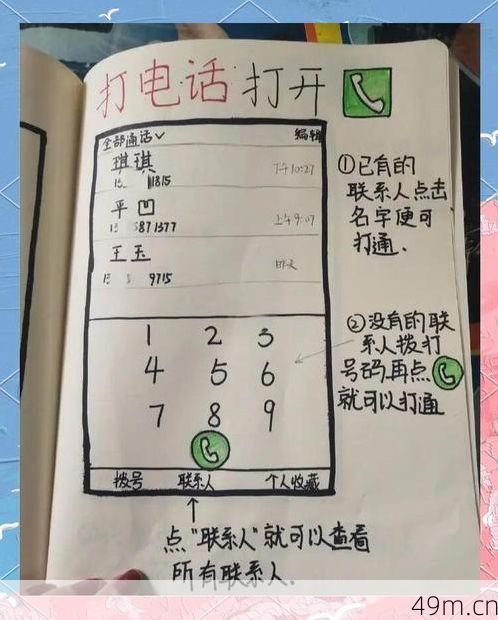 打电话 打开
全部通话
编辑
琪琪
下午10:27
1815
平凹
上午9:07
5871377
王玉
昨天
9715
1 2 3
4 5 6
7 8 9
拨号 联系人 个人收藏
①已有的
联系人点击
名字便可
打通.
②没有的联
系人拨打
号码再点
就可以打通
↑
点"联系人"就可以查看
所有联系人.
49m.cn